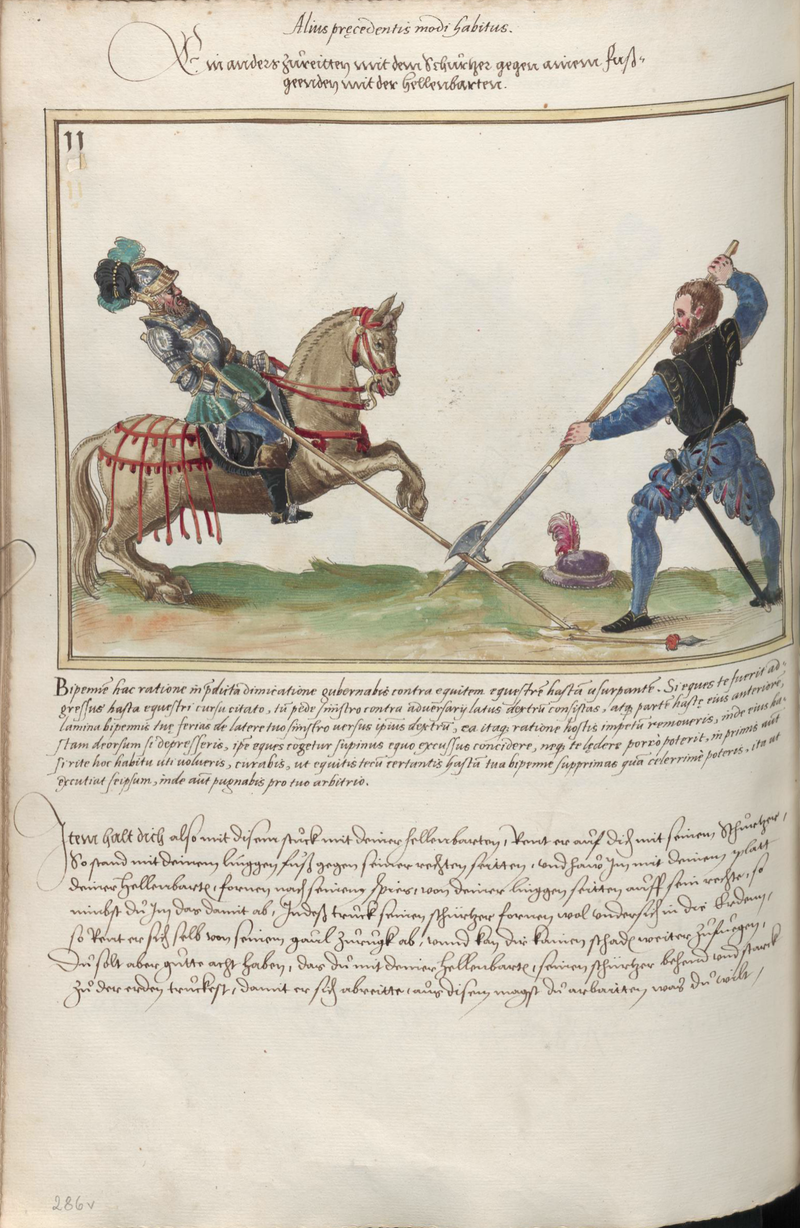 Alius pręcedentis modi habitus.
Ein anders Zůreitten mit dem Schürtzer gegen ainem fuß=
geenden mit der hellenbarten.
11
Bipenne hac ratione in p̃dicta dimicatione gubernabis contra equitem equestrẽ hastã usurpantẽ. Si eques te fuerit ad=
gressus hasta equestri cursu citato, tũ pede sinistro contra adversarij latus dextrũ consistas, atq́ partẽ hastę eius anteriorẽ,
lamina bipennis tuę ferias de latere tuo sinistro versus ipsius dextrũ, ea itaq́ ratione hostis impetũ removeris, inde eius ha=
stam deorsum si depresseris, ipse eques cogetur supinus equo excussus concidere, neq́ te lędere porrò poterit, inprimis aũt
si rite hoc habitu uti volueris, curabis, ut equitis tecũ certantis hastã tua bipenne supprimas quã celerrimè poteris, ita ut
excutiat seipsum, inde aũt pugnabis pro tuo arbitrio.
Item halt dich also mit disem stuck mit deiner hellenbarten, Rent er auf dich mit seinem Schürtzer,
So stand mit deinem linggen fuß gegen seiner rechten seitten, unnd haw Im mit deinem platt
deiner hellenbartñ, fornen nach seinem spies, von deiner linggen seitten auff sein rechte, so
nimbst dů Im das damit ab, Indeß truck seinen schürtzer fornen wol undersich in die Erdem,
so Rent er sich selb von seinem gaul Zůrugk ab, unnd kan dir kainen schadñ weiter Zůfuegen,
Du solt aber gůtte acht haben, das dů mit deiner hellenbartñ, seinen schürtzer behend unnd starck
Zů der erden truckest, damit er sich abreitte, aus disem magst dů arbaitten was dů wilt,
286v